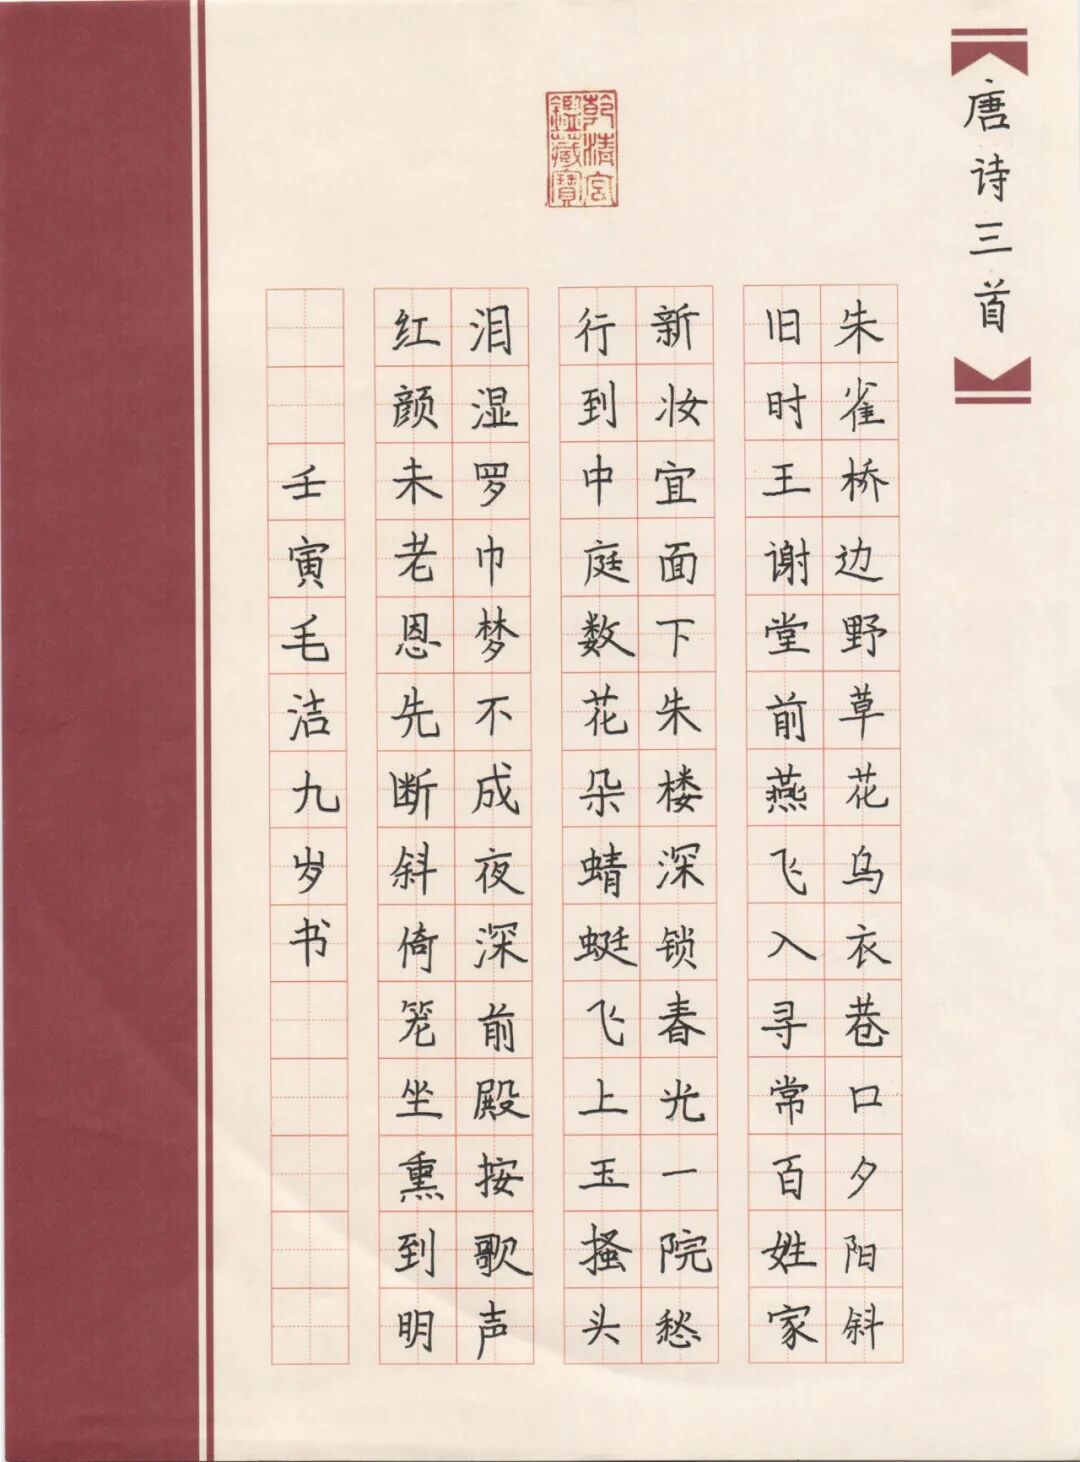 唐诗三首
朱雀桥边野草花乌衣巷口夕阳斜
旧时王谢堂前燕飞入寻常百姓家
新妆宜面下朱楼深锁春光一院愁
行到中庭数花朵蜻蜓飞上玉搔头
泪湿罗巾梦不成夜深前殿按歌声
红颜未老恩先断斜倚笼坐熏到明
壬寅毛洁九岁书
乾清宫
鑑藏寳